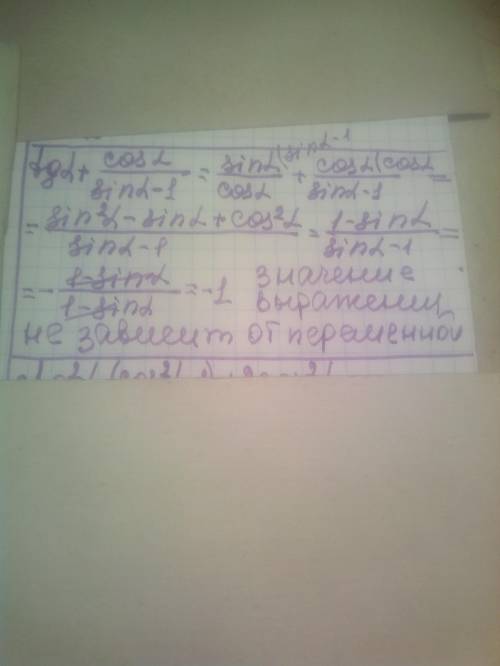 tgα + cosα/(sinα-1) = sinα/cosα (sinα-1 + cosα/(sinα-1) (cosα =
= (sin²α - sinα + cos²α)/(sinα-1) = (1-sinα)/(sinα-1) =
= - (1-sinα)/(1-sinα) = -1 значение
выражениц
не зависит от переменной